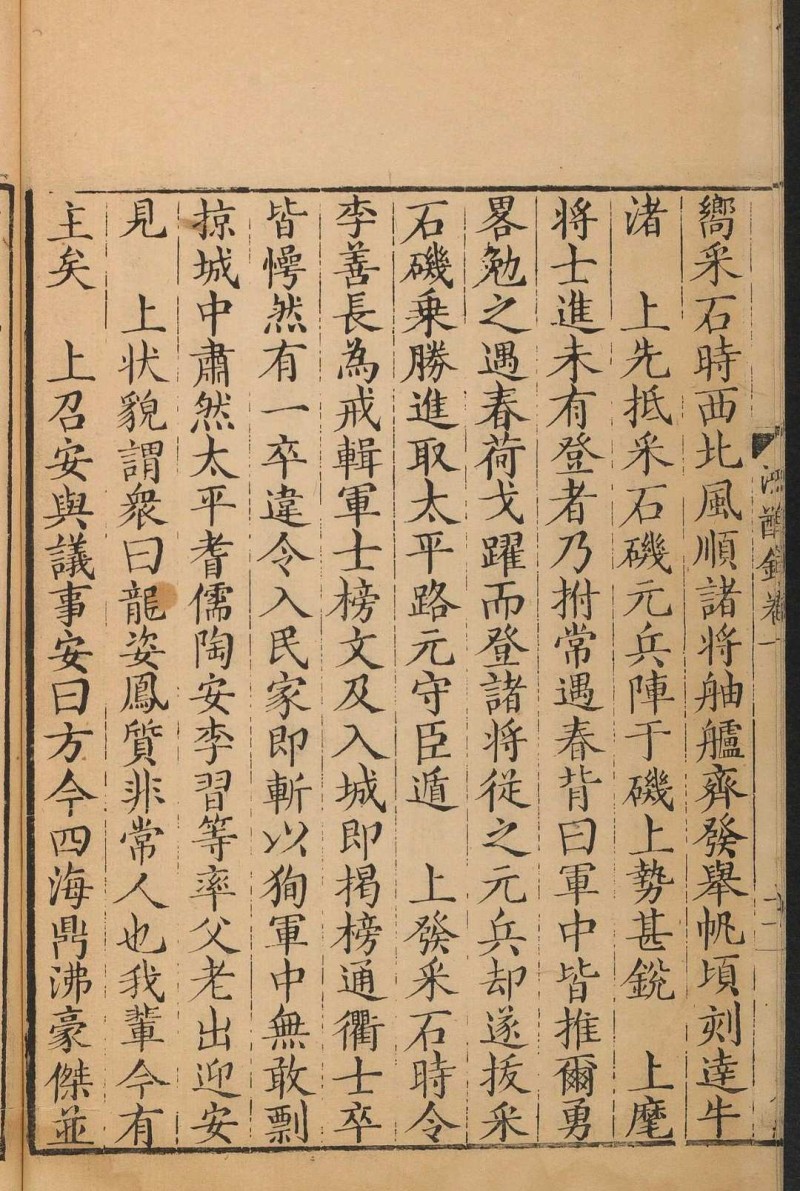 嚮采石時西北風順諸將舳艫齊發舉帆頃刻達牛
渚　上先抵采石磯元兵陣于磯上勢甚銳　上麾
將士進未有登者乃拊常遇春背曰軍中皆推爾勇
畧勉之遇春荷戈躍而登諸將從之元兵却遂拔采
石磯乗勝進取太平路元守臣遁　上發采石時令
李善長為戒輯軍士榜文及入城即揭榜通衢士卒
皆愕然有一卒違令入民家即斬以狥軍中無敢剽
掠城中肅然太平耆儒陶安李習等率父老出迎安
見　上状貌謂衆曰龍姿鳳質非常人也我輩今有
主矣　上召安與議事安曰方今四海鼎沸豪傑並
鴻猷錄卷一